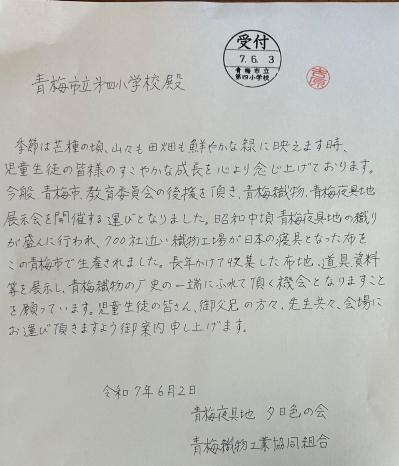 受付
7.6.3
青梅市立
第四小学校
青梅市立第四小学校殿
季節は芒種の頃、山々も田畑も鮮やかな緑に映えます時、
児童生徒の皆様のすこやかな成長を心より念じ上げております。
今般青梅市、教育委員会の後援を頂き、青梅織物、青梅夜具地
展示会を開催する運びとなりました。昭和中頃青梅夜具地の織り
が盛んに行われ、700社近い織物工場が日本の寝具となった布を
この青梅市で生産されました。長年かけて収集した布地、道具、資料
等を展示し、青梅織物の歴史の一端にふれて頂く機会となりますこと
を願っています。児童生徒の皆さん、御父兄の方々、先生共々、会場に
お運び頂きますよう御案内申し上げます。
令和7年6月2日
青梅夜具地 夕日色の会
青梅織物工業協同組合